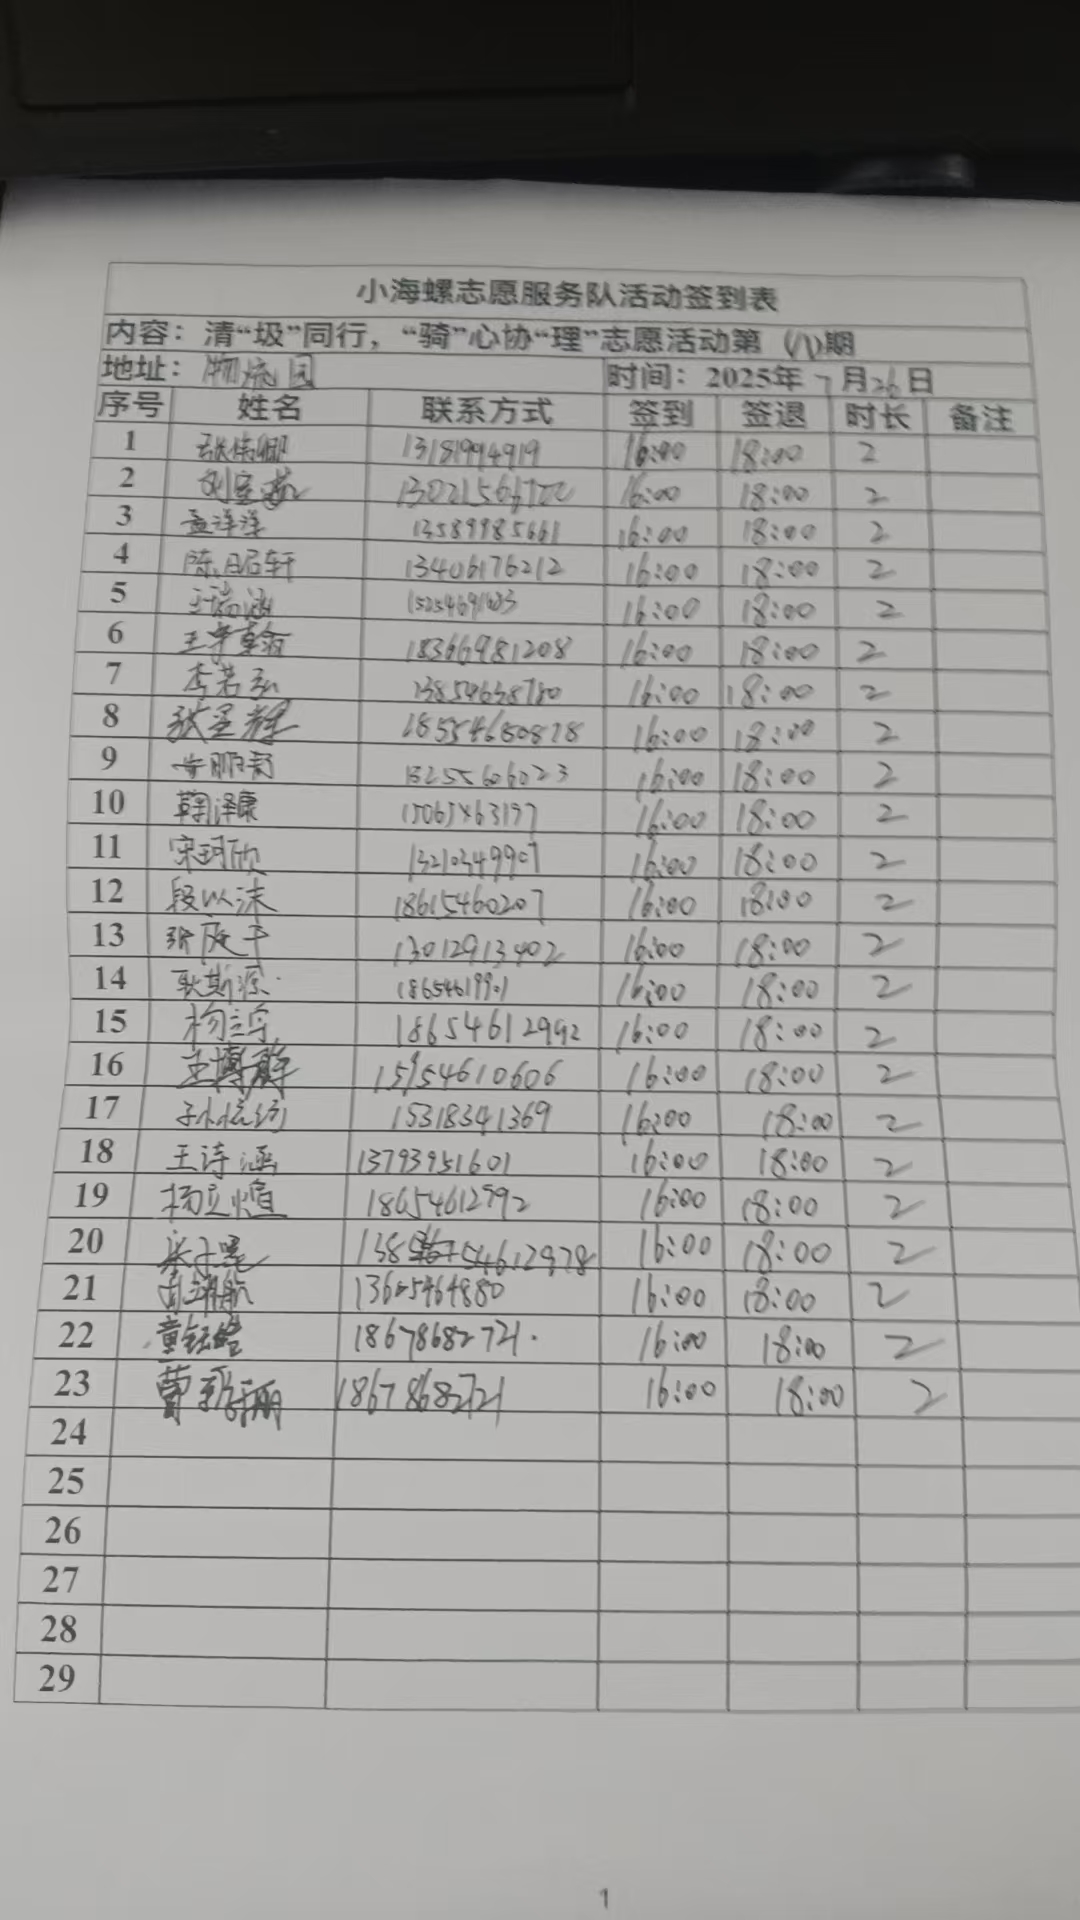 小海螺志愿服务队活动签到表
内容：清“圾”同行，“骑”心协“理”志愿活动第（八）期
地址：物流园 时间：2025年7月26日
序号 姓名 联系方式 签到 签退 时长 备注
1 张伟卿 13181994919 16:00 18:00 2
2 16:00 18:00 2
3 孟洋洋 13589985661 16:00 18:00 2
4 陈冠轩 13406176212 16:00 18:00 2
5 王瑞涵 16:00 18:00 2
6 王宇 18366981208 16:00 18:00 2
7 李若弘 13854638780 16:00 18:00 2
8 张圣耀 18554680878 16:00 18:00 2
9 13255606023 16:00 18:00 2
10 鞠泽康 16:00 18:00 2
11 宋珂欣 13210349907 16:00 18:00 2
12 段以沫 18615460207 16:00 18:00 2
13 张庭于 13012913402 16:00 18:00 2
14 耿斯源 16:00 18:00 2
15 杨立 18654612992 16:00 18:00 2
16 王博 15954610606 16:00 18:00 2
17 孙 15318341369 16:00 18:00 2
18 王诗涵 13793951601 16:00 18:00 2
19 杨立煊 18654612992 16:00 18:00 2
20 16:00 18:00 2
21 航 13605464880 16:00 18:00 2
22 童 18678682721 16:00 18:00 2
23 曹 18678682721 16:00 18:00 2
24
25
26
27
28
29
1